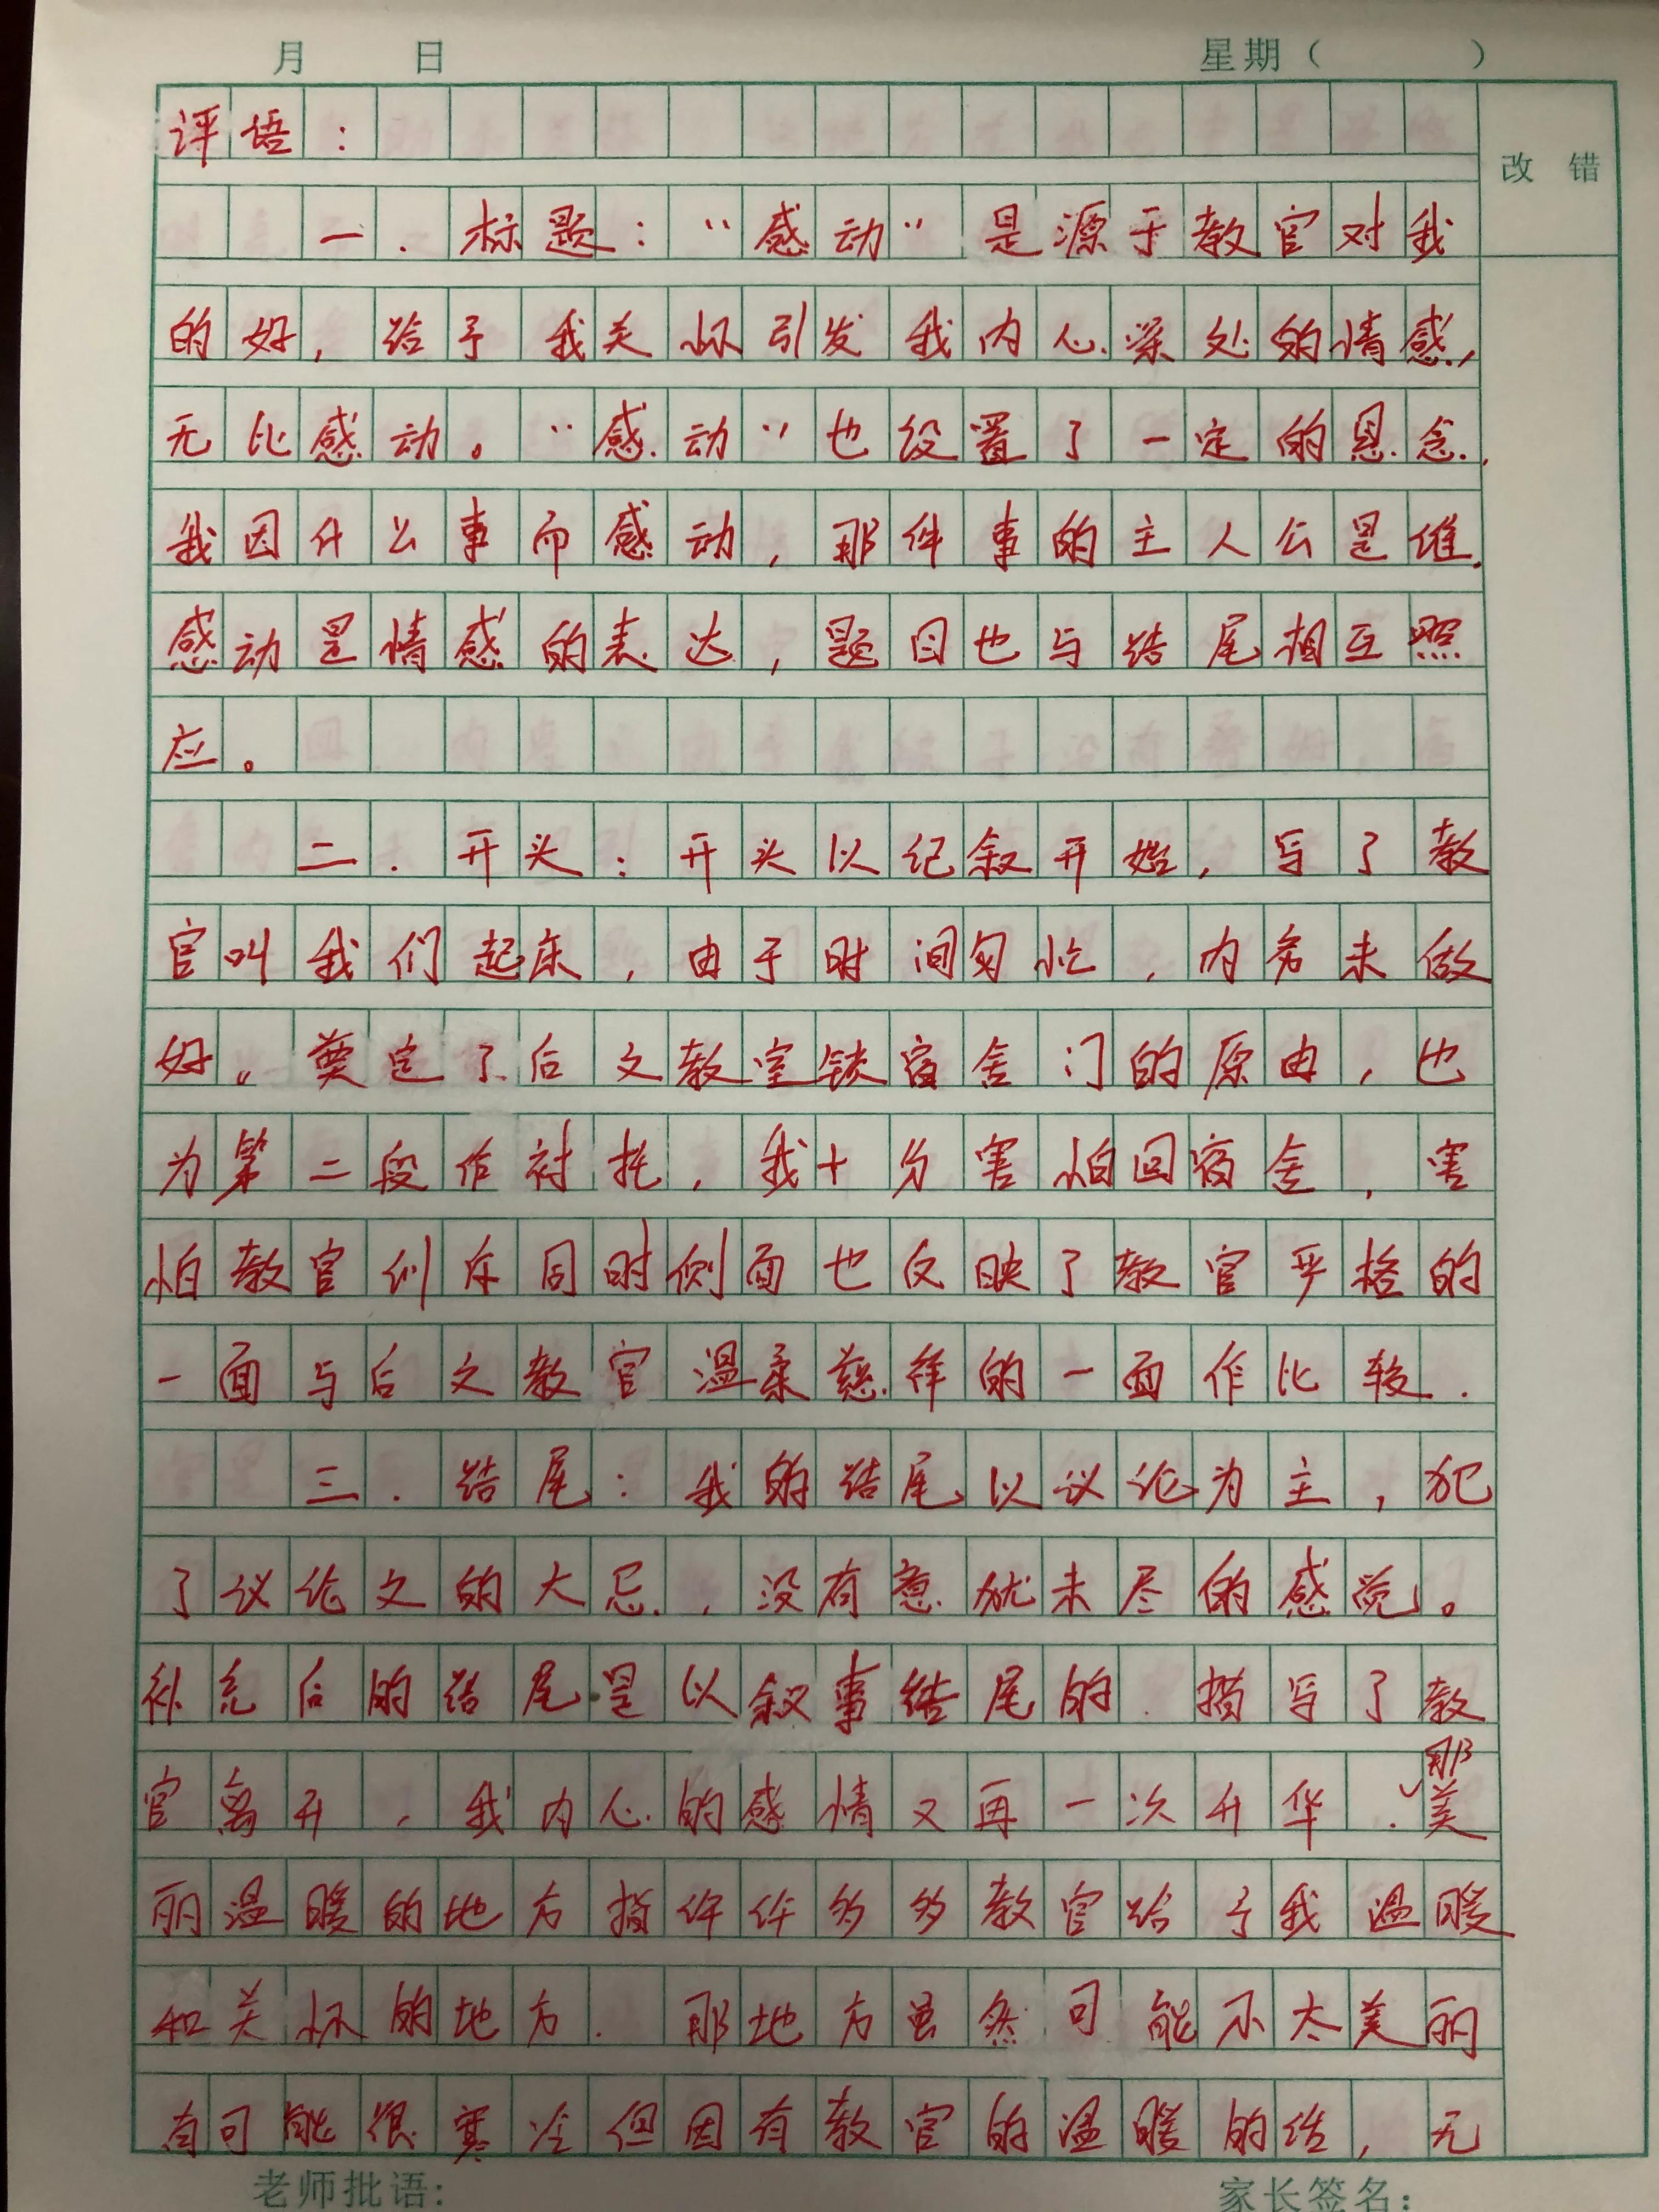 月 日 星期（ ）
改 错
评语：
一．标题：“感动”是源于教官对我
的好，给予我关怀引发我内心深处的情感，
无比感动。“感动”也设置了一定的悬念，
我因什么事而感动，那件事的主人公是谁．
感动是情感的表达，题目也与结尾相互照
应。
二．开头：开头以纪叙开始，写了教
官叫我们起床，由于时间匆忙，内务未做
好。奠定了后文教室锁宿舍门的原由，也
为第二段作衬托，我十分害怕回宿舍，害
怕教官训斥同时侧面也反映了教官严格的
一面与后文教官温柔慈祥的一面作比较．
三．结尾：我的结尾以议论为主，犯
了议论文的大忌，没有意犹未尽的感觉。
补充后的结尾是以叙事结尾的．描写了教
官离开，我内心的感情又再一次升华．那美
丽温暖的地方指许许多多教官给予我温暖
和关怀的地方．那地方虽然可能不太美丽
有可能很寒冷但因有教官的温暖的话，无
老师批语： 家长签名：